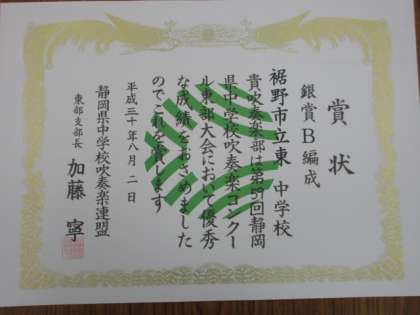 賞状
銀賞 B編成
裾野市立東中学校
貴吹奏楽部は第59回静岡
県中学校吹奏楽コンクー
ル東部大会において優秀
な成績をおさめました
のでこれを賞します
平成三十年八月二日
静岡県中学校吹奏楽連盟
東部支部長 加藤 寧